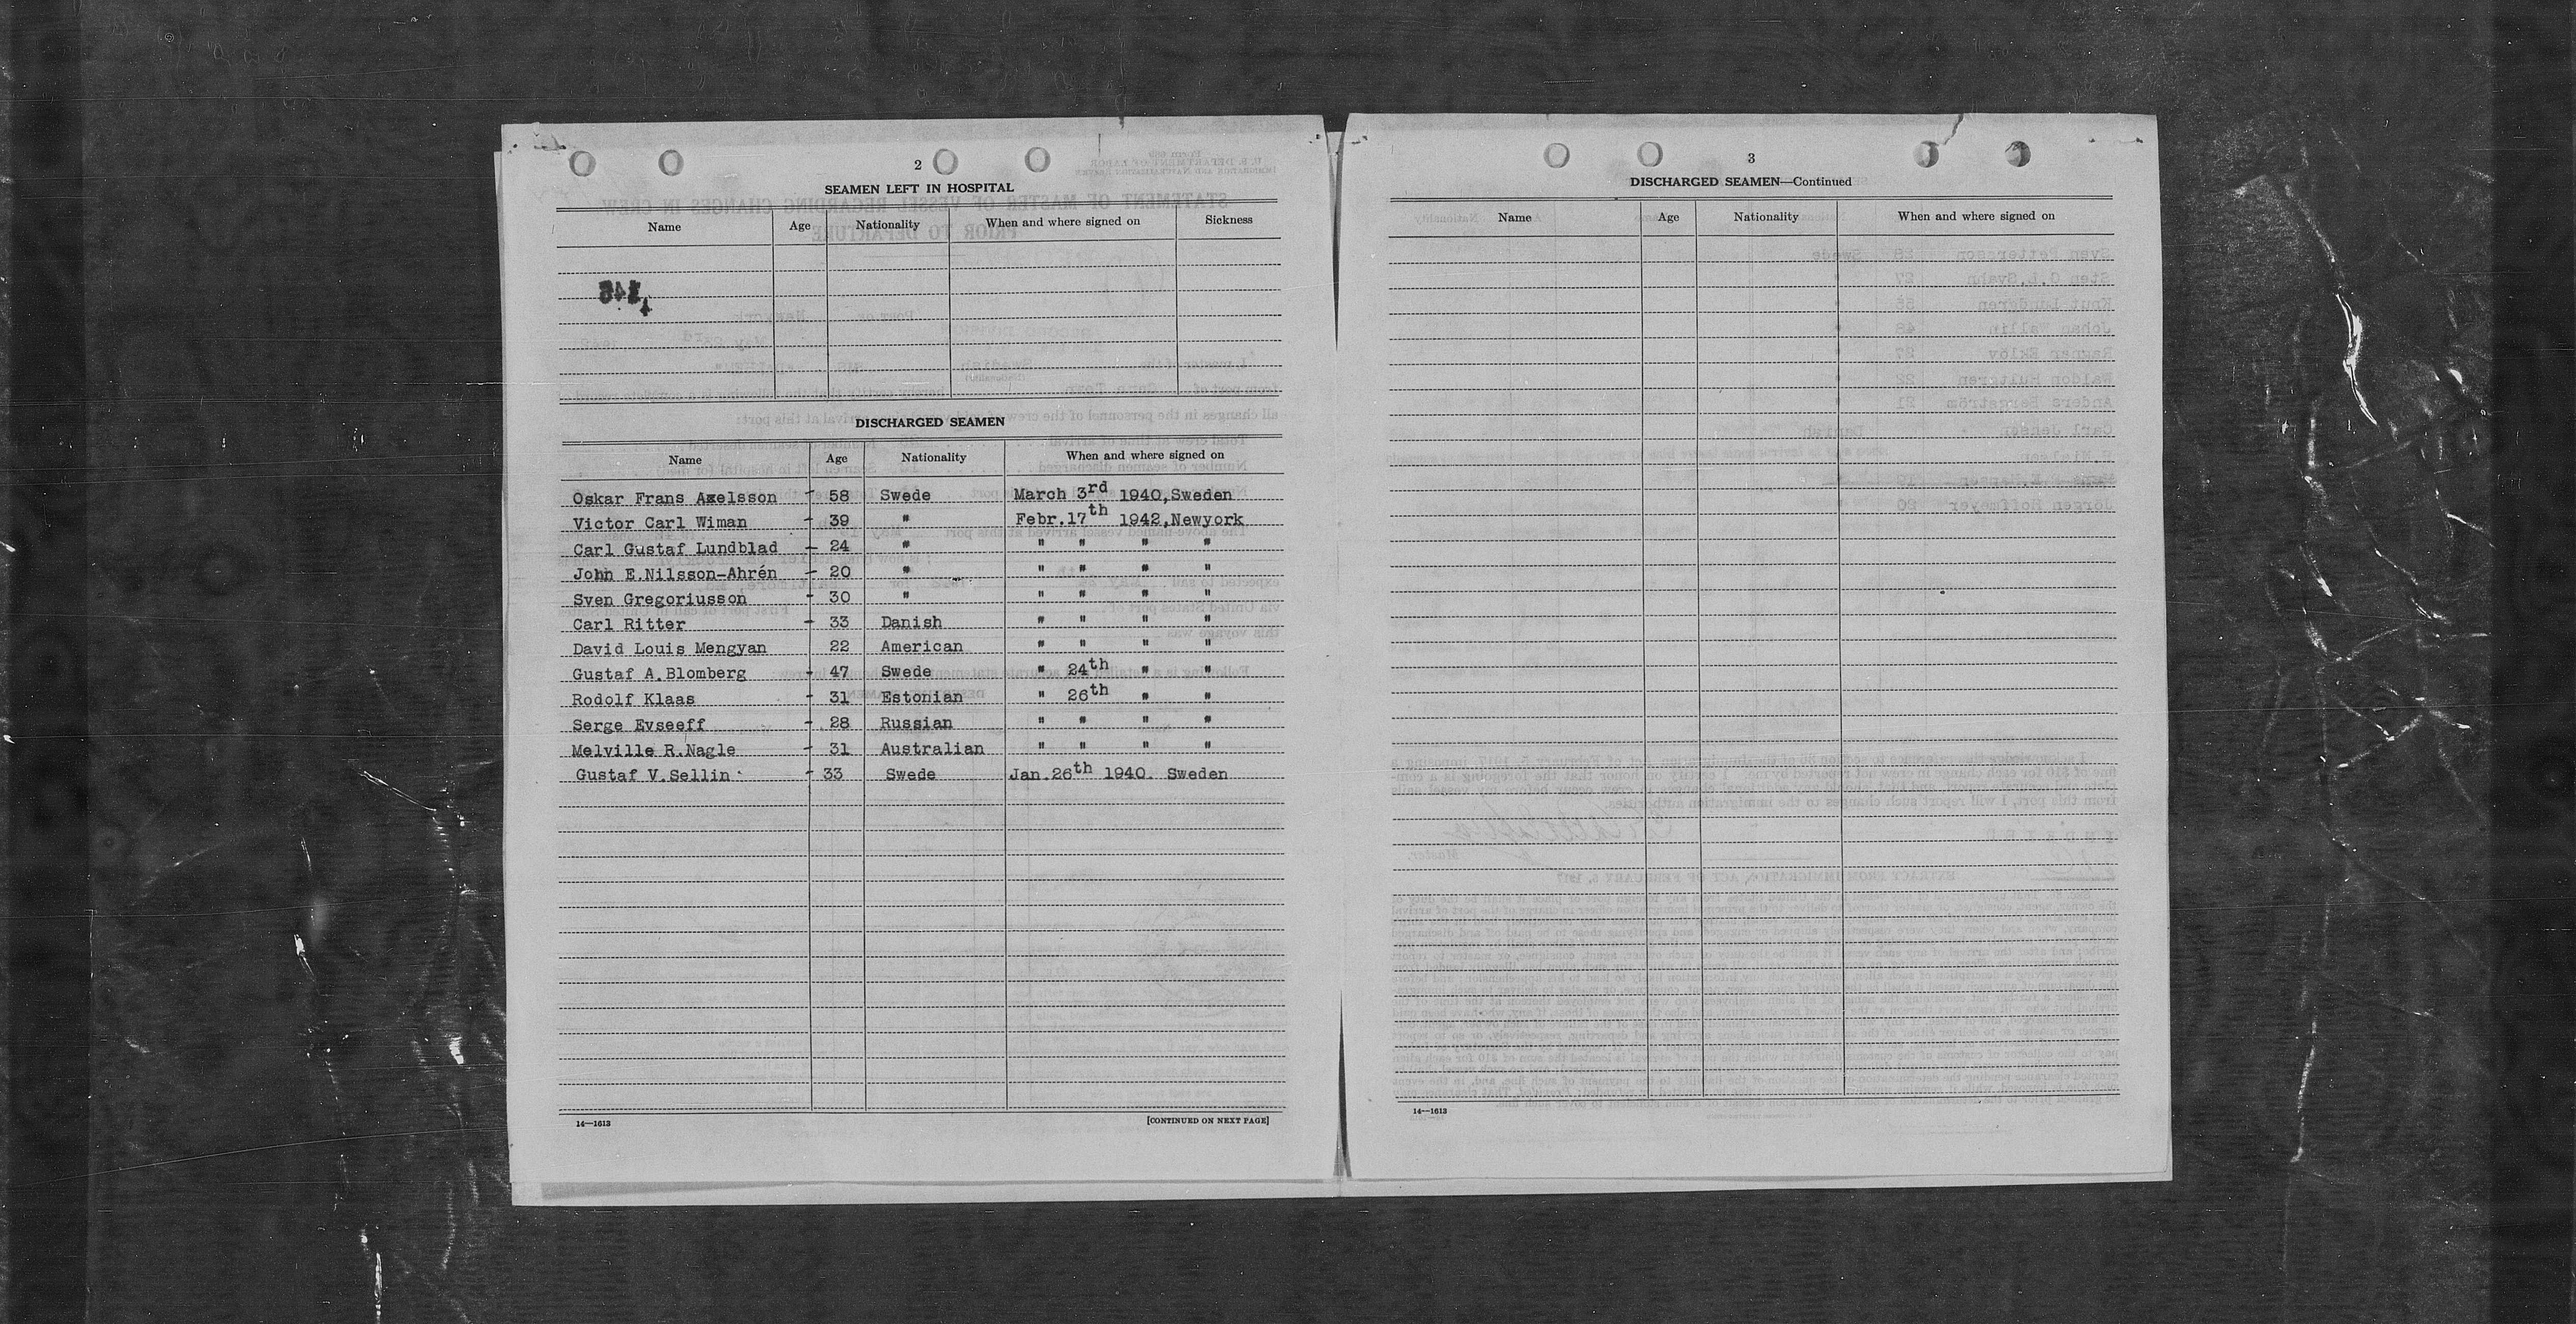 2
SEAMEN LEFT IN HOSPITAL
Name Age Nationality When and where signed on Sickness
DISCHARGED SEAMEN
Name Age Nationality When and where signed on
Oskar Frans Axelsson - 58 Swede March 3rd 1940, Sweden
Victor Carl Wiman - 39 " Febr.17th 1942, Newyork
Carl Gustaf Lundblad - 24 " " " " "
John E.Nilsson-Ahrén - 20 " " " " "
Sven Gregoriusson - 30 " " " " "
Carl Ritter - 33 Danish " " " "
David Louis Mengyan 22 American " " " "
Gustaf A.Blomberg - 47 Swede " 24th " "
Rodolf Klaas - 31 Estonian " 26th " "
Serge Evseeff - 28 Russian " " " "
Melville R.Nagle - 31 Australian " " " "
Gustaf V.Sellin - 33 Swede Jan.26th 1940. Sweden
14—1613 [CONTINUED ON NEXT PAGE]
3
DISCHARGED SEAMEN—Continued
Name Age Nationality When and where signed on
14—1613